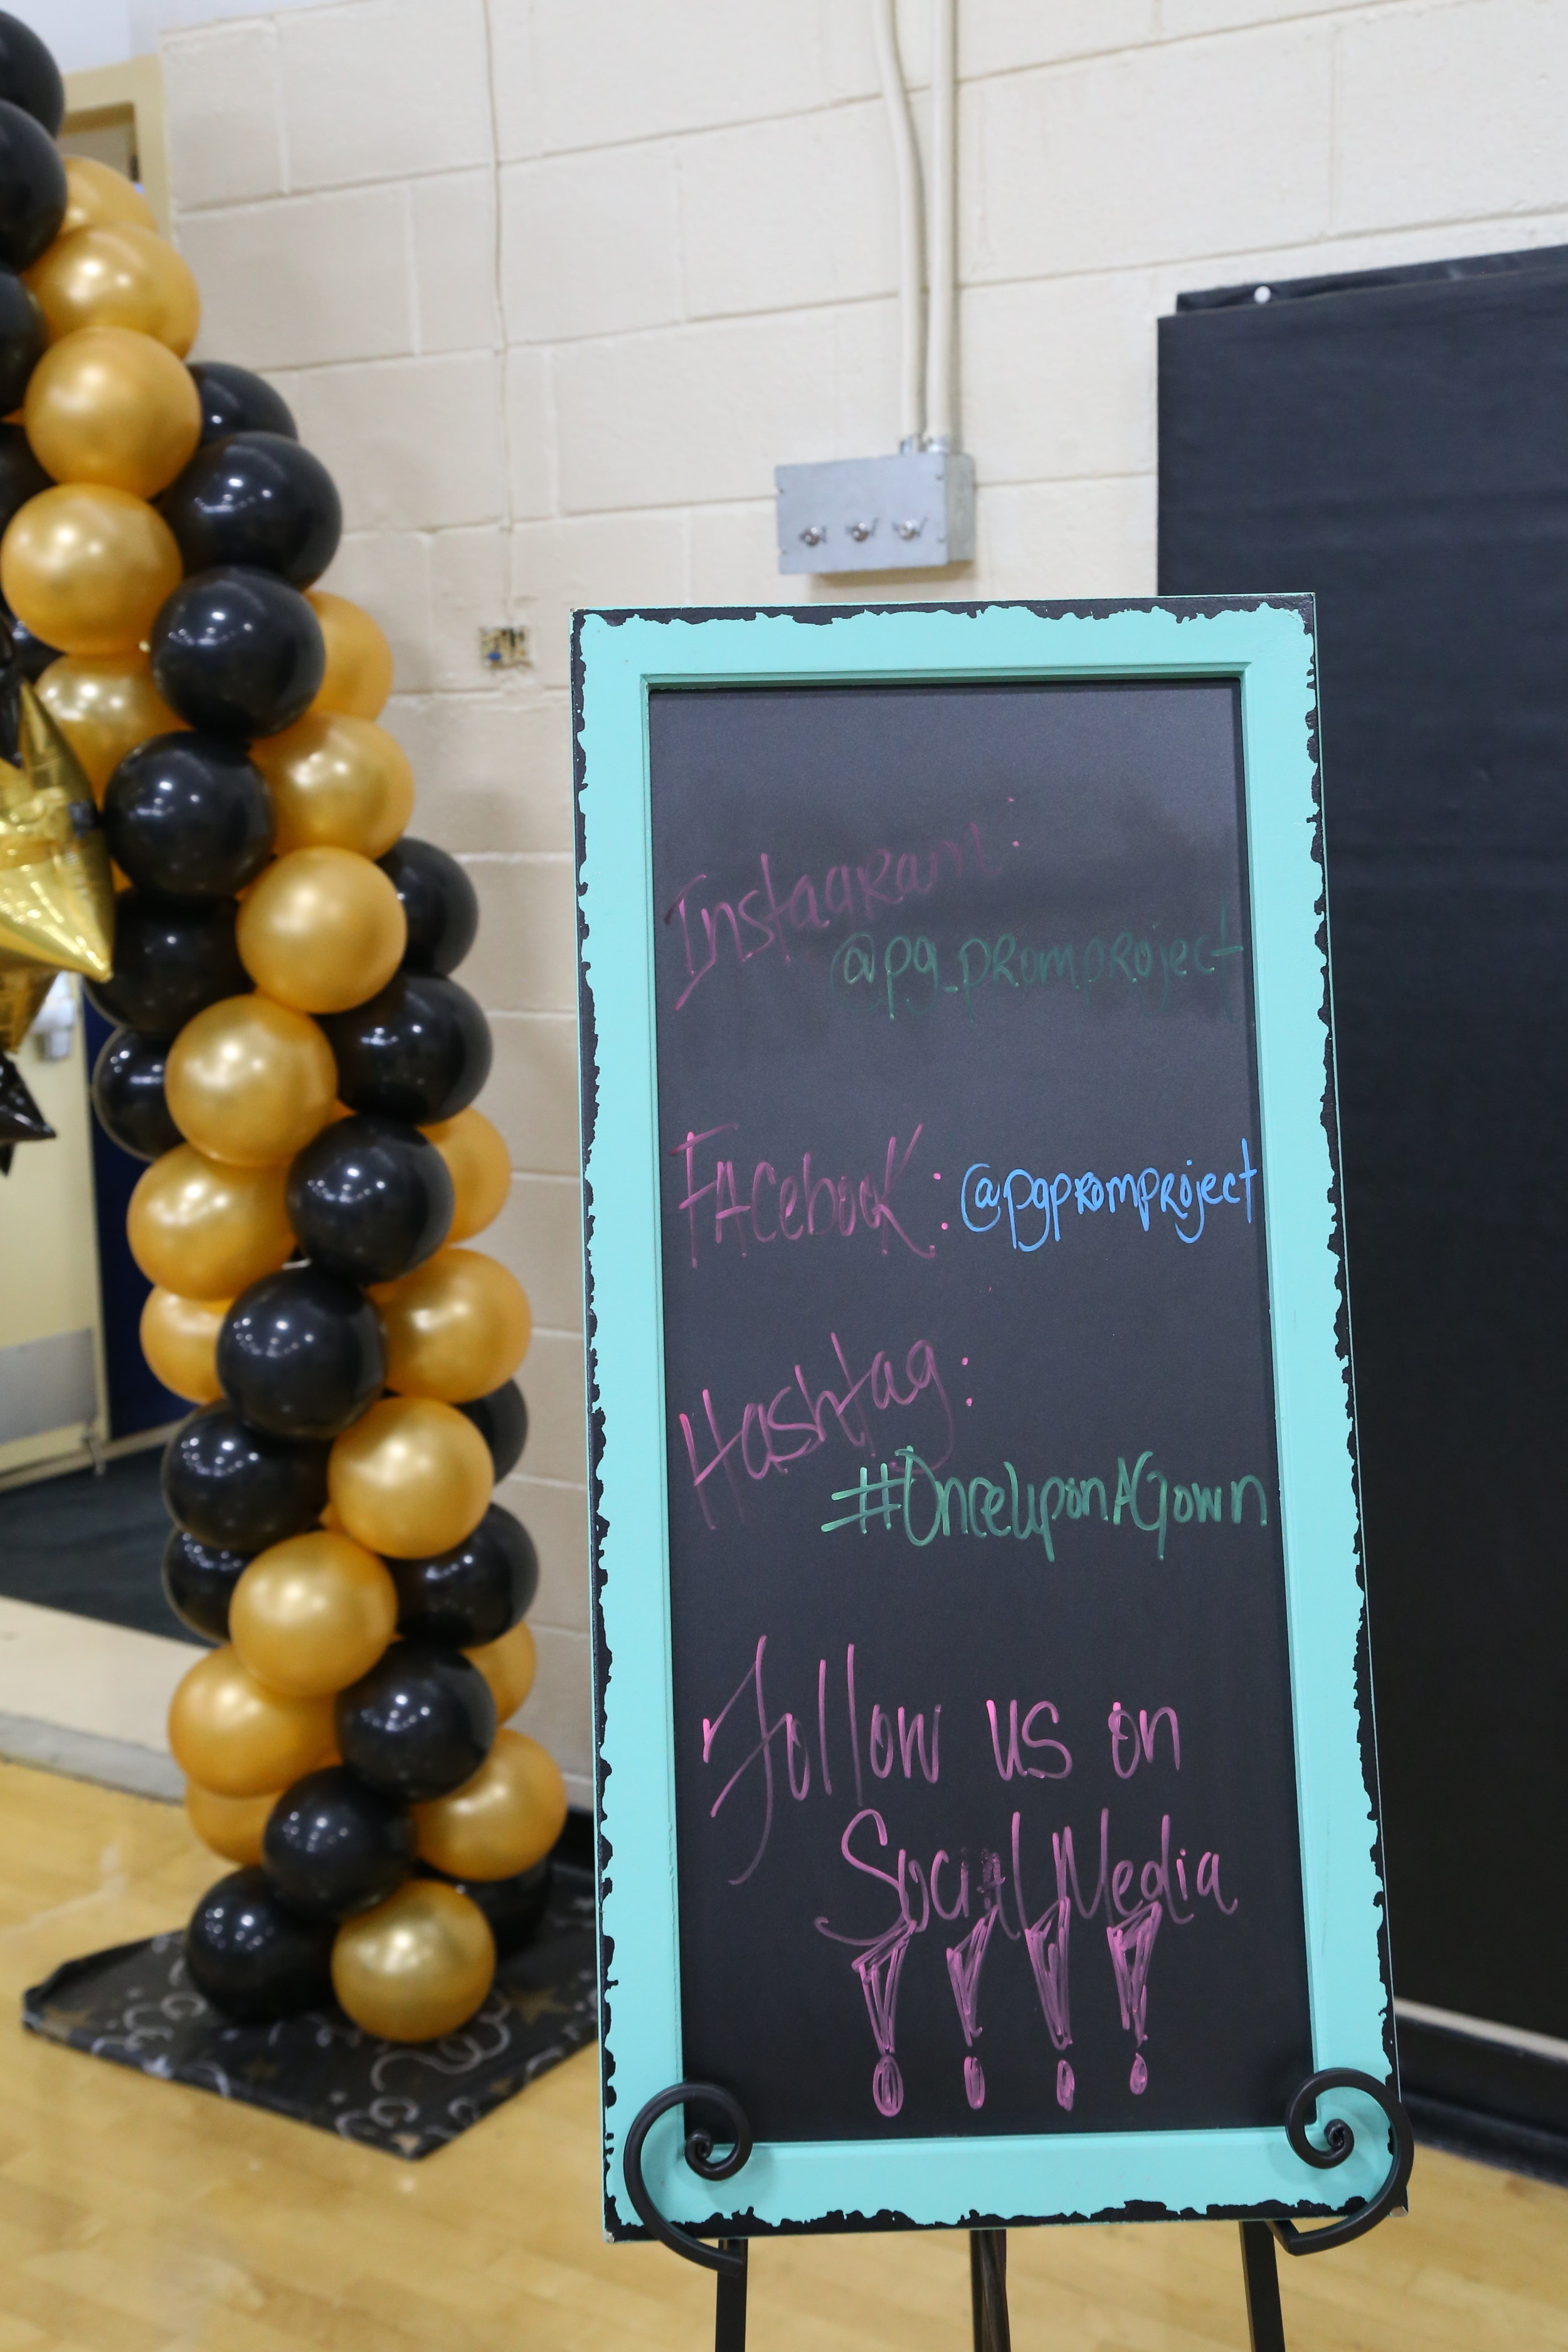 Instagram:
@pg_promproject
FAcebook: @pgpromproject
Hashtag:
#OnceUponAGown
Follow us on
Social Media
! ! ! !